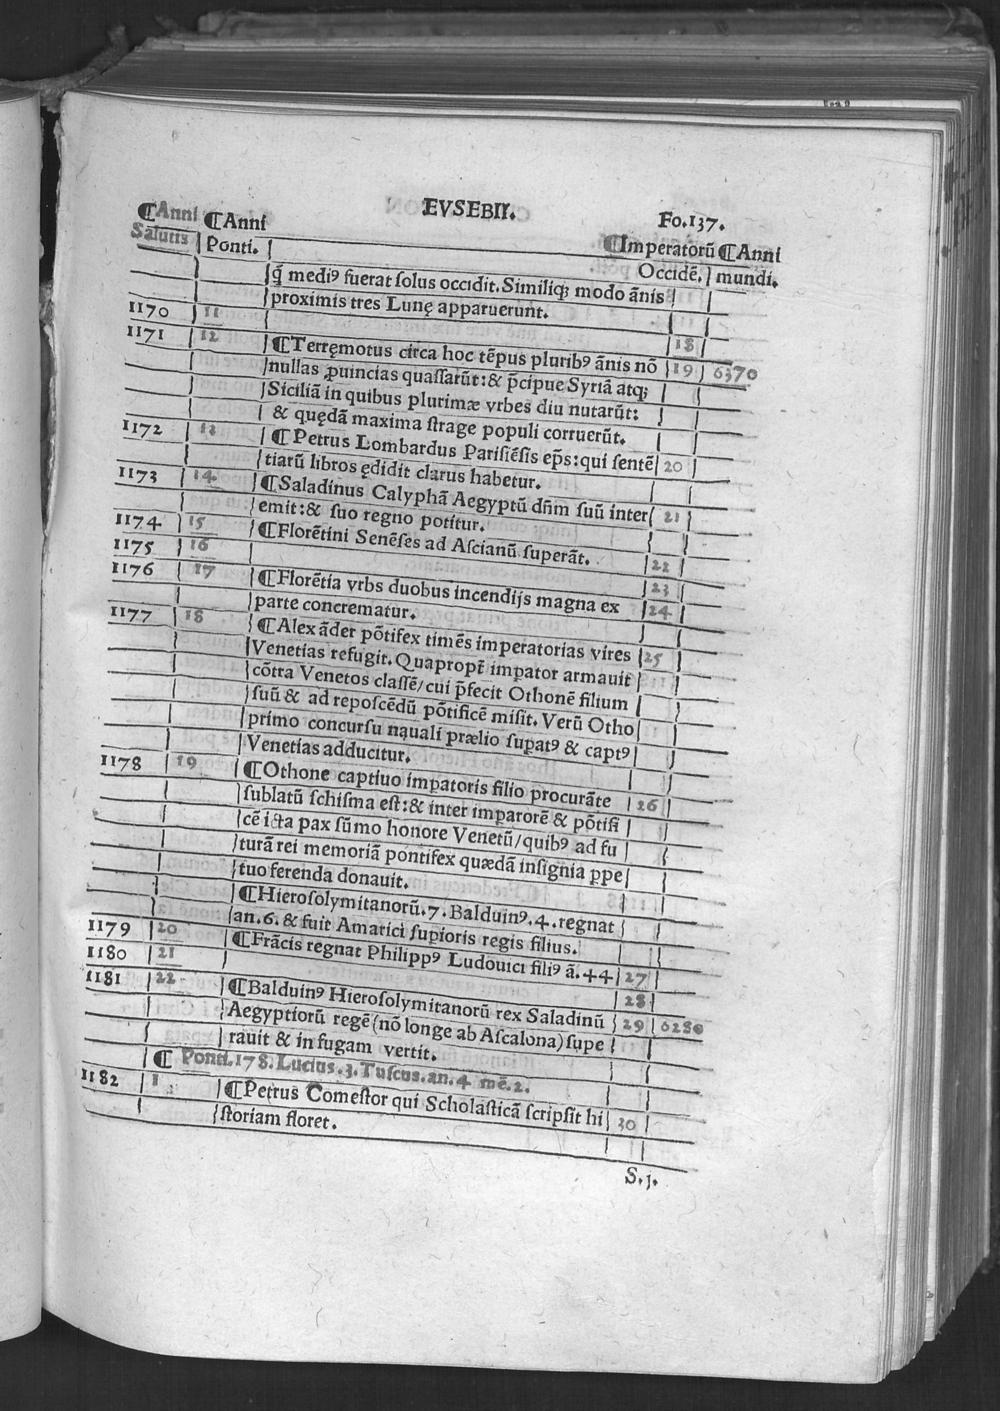 EVSEBII. Fo.137.
¶Anni ¶Anni ¶Imperatorū ¶Anni
Salutis Ponti. Occidē. mundi.
q̄ mediꝰ fuerat ſolus occidit. Similiqꝫ modo ānis
proximis tres Lunę apparuerunt.
1170 11 18
1171 12 ¶Terręmotus circa hoc tēpus pluribꝰ ānis nō 19 6370
nullas ꝓuincias quaſſarūt:& p̄cipue Syriā atqꝫ
Siciliā in quibus plurimæ vrbes diu nutarūt:
& quędā maxima ſtrage populi corruerūt.
1172 13 ¶Petrus Lombardus Pariſiēſis ep̄s:qui ſentē 20
tiarū libros ędidit clarus habetur.
1173 14 ¶Saladinus Calyphā Aegyptū dn̄m ſuū inter 21
emit:& ſuo regno potitur.
1174 15 ¶Florētini Senēſes ad Aſcianū ſuperāt. 22
1175 16 23
1176 17 ¶Florētia vrbs duobus incendijs magna ex 24
parte concrematur.
1177 18 ¶Alex āder pōtifex timēs imperatorias vires 25
Venetias refugit. Quapropt̄ imꝑator armauit
cōtra Venetos claſſē/cui p̄fecit Othonē filium
ſuū & ad repoſcēdū pōtificē miſit. Verū Otho
primo concurſu nauali prælio ſuꝑatꝰ & captꝰ
Venetias adducitur.
1178 19 ¶Othone captiuo imꝑatoris filio procurāte 26
ſublatū ſchiſma eſt:& inter imꝑarorē & pōtifi
cē icta pax ſūmo honore Venetū/quibꝰ ad fu
turā rei memoriā pontifex quædā inſignia ꝑpe
tuo ferenda donauit.
¶Hieroſolymitanorū.7.Balduinꝰ.4.regnat
an.6.& fuit Amatici ſuꝑioris regis filius.
1179 20 ¶Frācis regnat Philippꝰ Ludouici filiꝰ ā.44 27
1180 21 28
1181 22 ¶Balduinꝰ Hieroſolymitanorū rex Saladinū 29 6280
Aegyptiorū regē (nō longe ab Aſcalona) ſupe
rauit & in fugam vertit.
¶ Ponti.178.Lucius.3.Tuſcus.an.4 mē.2.
1182 1 ¶Petrus Comeſtor qui Scholaſticā ſcripſit hi 30
ſtoriam floret.
S.j.